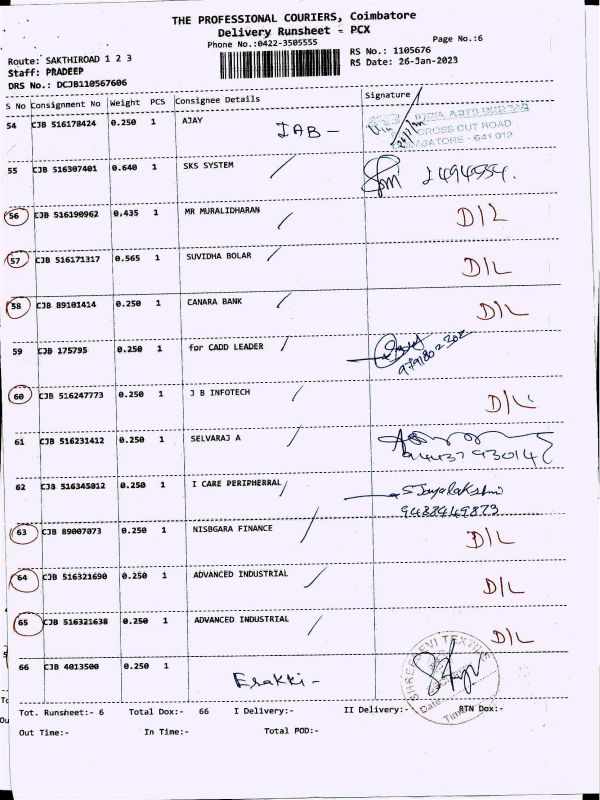 THE PROFESSIONAL COURIERS, Coimbatore
Delivery Runsheet - PCX
Phone No.:0422-3505555
Page No.:6
Route: SAKTHIROAD 1 2 3
RS No.: 1105676
Staff: PRADEEP
RS Date: 26-Jan-2023
DRS No.: DCJB110567606
S No Consignment No Weight PCS Consignee Details Signature
54 CJB 516178424 0.250 1 AJAY
IAB -
CROSS CUT ROAD
COIMBATORE - 641 012
55 CJB 516307401 0.640 1 SKS SYSTEM
56 CJB 516190962 0.435 1 MR MURALIDHARAN D/L
57 CJB 516171317 0.565 1 SUVIDHA BOLAR D/L
58 CJB 89101414 0.250 1 CANARA BANK D/L
59 CJB 175795 0.250 1 for CADD LEADER
60 CJB 516247773 0.250 1 J B INFOTECH D/L
61 CJB 516231412 0.250 1 SELVARAJ A
62 CJB 516345012 0.250 1 I CARE PERIPHERRAL S Jayalakshmi
9488949873
63 CJB 89007073 0.250 1 NISBGARA FINANCE D/L
64 CJB 516321690 0.250 1 ADVANCED INDUSTRIAL D/L
65 CJB 516321638 0.250 1 ADVANCED INDUSTRIAL D/L
66 CJB 4013500 0.250 1
Esakki -
Tot. Runsheet:- 6 Total Dox:- 66 I Delivery:- II Delivery:- RTN Dox:-
Out Time:- In Time:- Total POD:-